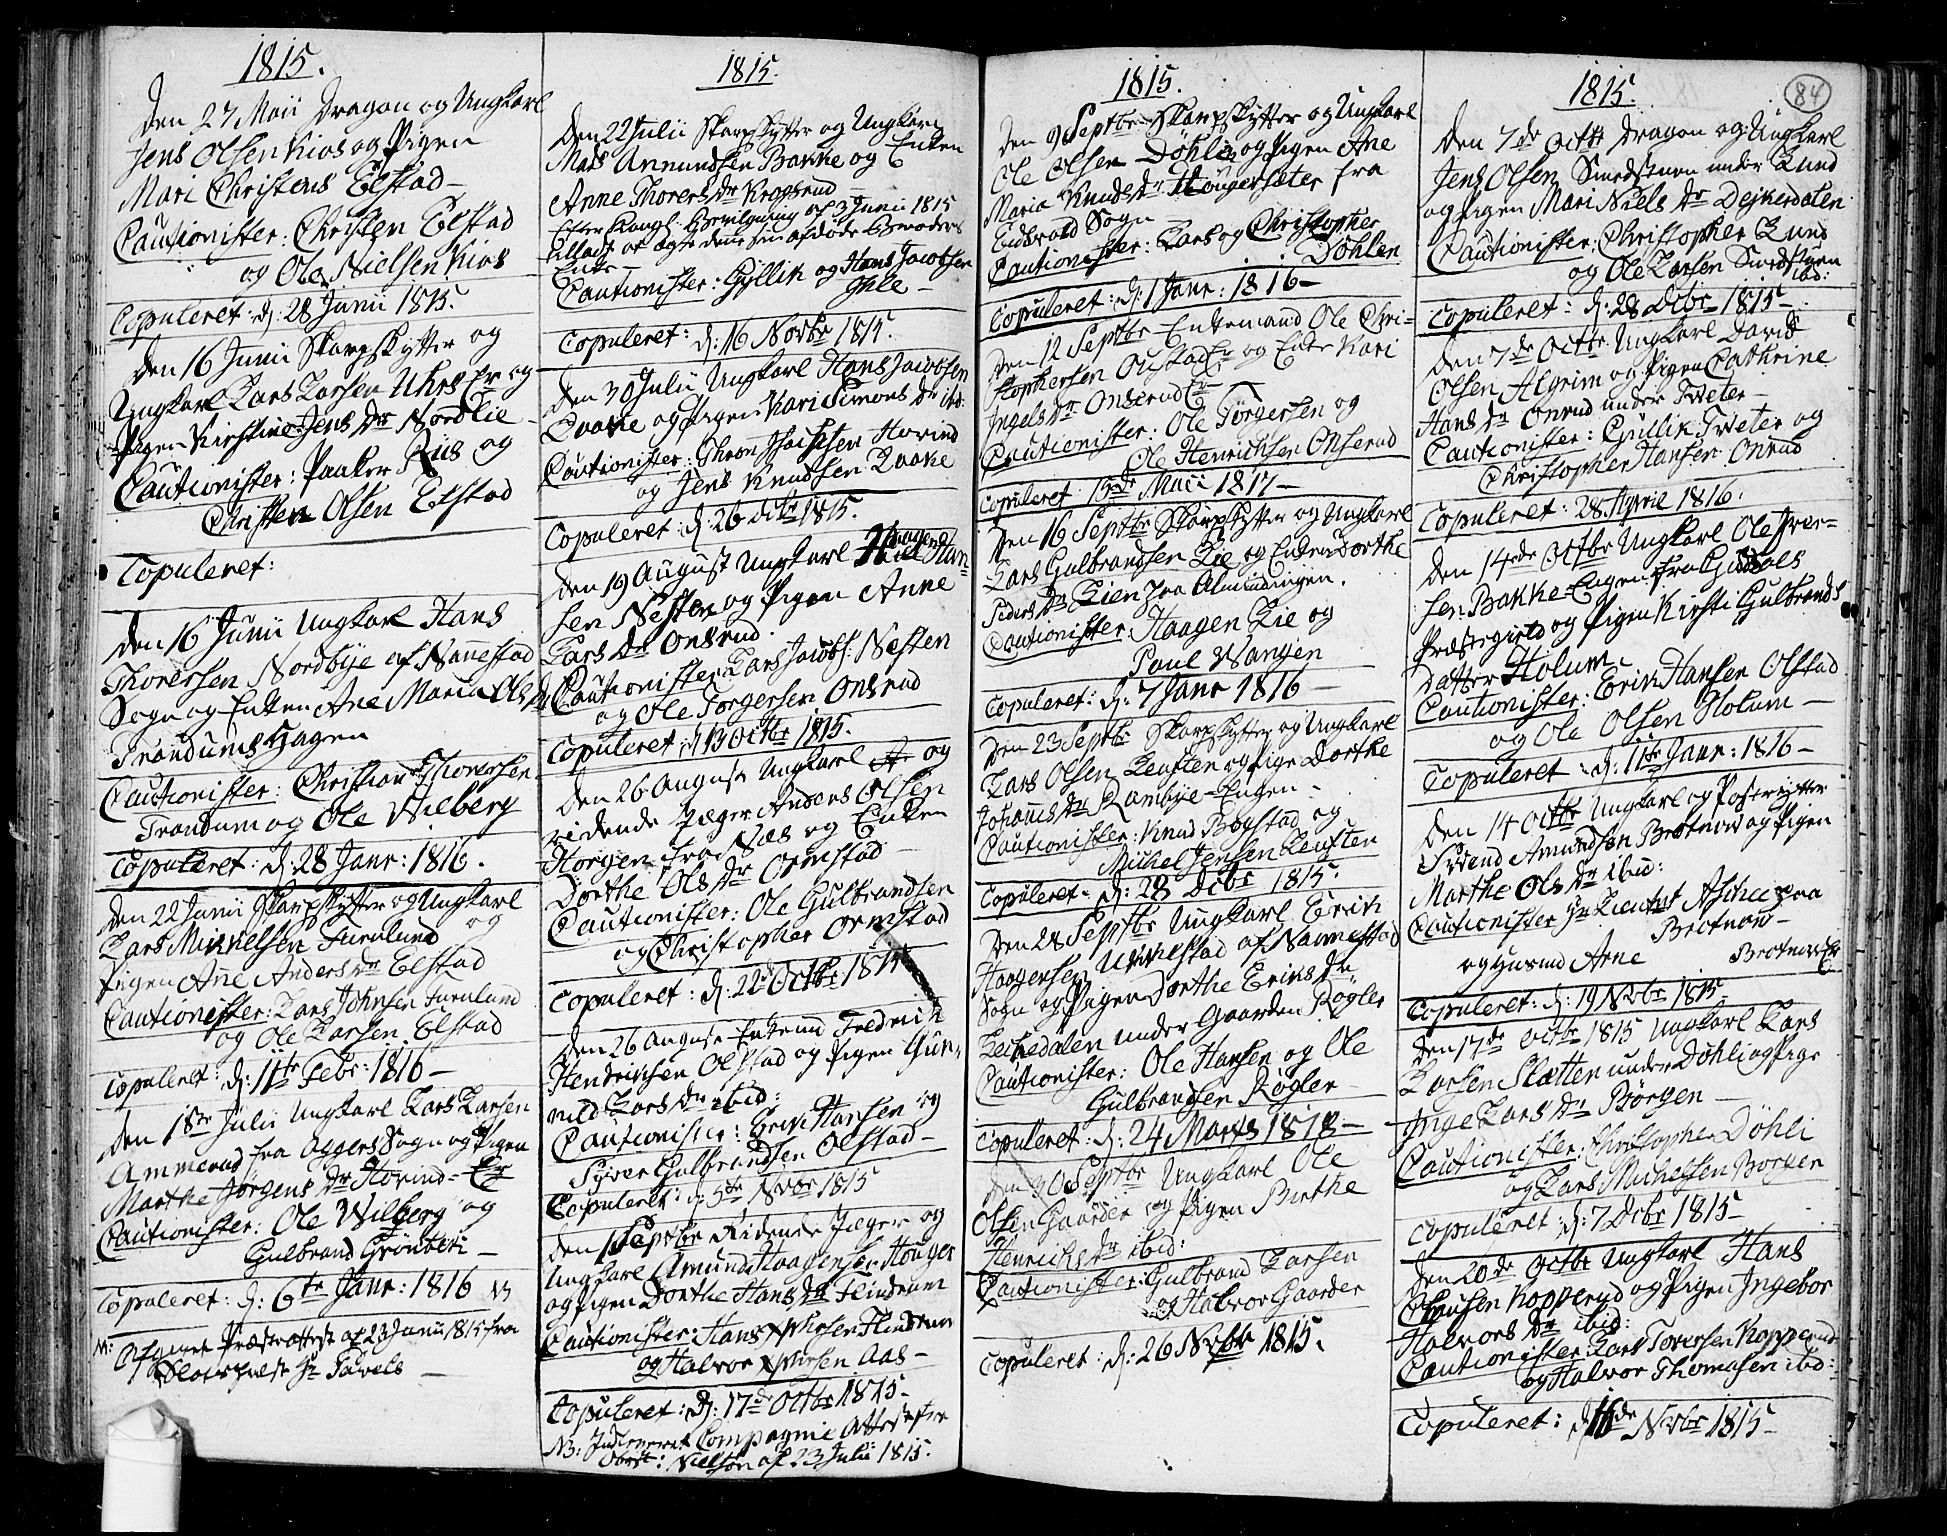 1815.
Den 27 Maii Dragon og Ungkarl
Jens Olsen Kios og Pigen
Mari Christens Elstad
Cautionister: Christen Elstad
og Ole Nielsen Kios
Copuleret: d: 28 Junii 1815.
Den 16 Junii Skarpskytter og
Ungkarl Lars Larsen og
Pigen Kirstine Jens Dr Nordlie
Cautionister: Riis og
Christen Olsen Elstad
Copuleret:
Den 16 Junii Ungkarl Hans
Thoresen Nordbye af Nannestad
Sogn og Enken Ane Maria Ols Dr
Trandums Hagen
Cautionister: Christian Thoresen
Trandum og Ole Wilberg
Copuleret: d: 28 Janr: 1816.
Den 22 Junii Skarpskytter og Ungkarl
Lars Mikkelsen Furulund og
Pigen Ane Anders Dr Elstad
Cautionister: Lars Johnsen Furulund
og Ole Larsen Elstad
Copuleret: d: 11te Febr: 1816
Den 1ste Julii Ungkarl Lars Larsen
Ammerud fra Aggers Sogn og Pigen
Marthe Jørgens Dr Hovind
Cautionister: Ole Wilberg og
Gulbrand Grønberi
Copuleret: d: 6te Janr: 1816 NB
N: Præsteattest af 23 Junii 1815 fra
Hr
1815.
Den 22 Julii Skarpskytter og Ungkarl
Mads Amundsen Bakke og Enken
Anne Thorers Dr Kropsrud
Efter Kongl: Bevilgning af 3 Junii 1815
tilladt at ægte denne sin afdøde Broders
Enke
Cautionister: Gyllik og Hans Jacobsen
Ihle
Copuleret: d: 16 Novbr 1815.
Den 30 Julii Ungkarl Hans Jacobsen
Laake og Pigen Kari Simons Dr ibd:
Cautionister: Thron Hovind
og Jens Knudsen Laake
Copuleret: d: 26 Octbr 1815.
Den 19 August Ungkarl Haagen Han-
sen Nesten og Pigen Anne
Lars Dr Onsrud.
Cautionister: Lars Jacobs: Nesten
og Ole Torgersen Onsrud
Copuleret: d: 13 Octbr 1815.
Den 26 August Ungkarl og
ridende Jæger Anders Olsen
Horgen fra Næs og Enken
Dorthe Ols Dr Ormstad
Cautionister: Ole Gulbrandsen
og Christopher Ormstad
Copuleret: d: 22 Octbr 1815
Den 26 August Enkemd Fredrich
Hendrichsen Olstad og Pigen Gun-
nild Lars Dr ibid:
Cautionister: Erik Hansen og
Syver Gulbrandsen Olstad
Copuleret: d: 5te Novbr 1815
Den 1 Septbr Ridende Jæger og
Ungkarl Amund Haagensen Houger
og Pigen Dorthe Hans Dr Flindrum
Cautionister: Hans Flindrum
og Halvor Aas
Copuleret: d: 17de Octbr 1815
NB: Compagnie Attest fra
Nielson af 23 Julii 1815.
1815.
Den 9 Septbr Skarpskytter og Ungkarl
Ole Olsen Døhlie og Pigen Ane
Maria Knuds Dr Hougersæter fra
Eidsvold Sogn
Cautionister: Lars og Christopher
Døhlen
Copuleret: d: 1 Janr: 1816
Den 12 Septbr Enkemand Ole Chri-
stophersen Onstad og Enke Kari
Ingels Dr Onsrud
Cautionister: Ole Tørgersen og
Ole Henrichsen Onserud
Copuleret: 13de Maii 1817
Den 16 Septbr Skarpskytter og Ungkarl
Lars Gulbrandsen Lie og Enken Dorthe
Peders Dr Lien fra Almindingen.
Cautionister: Haagen Lie og
Poul Wangen
Copuleret: d: 7 Janr 1816
Den 23 Septbr Skarpskytter og Ungkarl
Lars Olsen Keuften og Pige Dorthe
Johannes Dr Rambye-Engen
Cautionister: Knud Bogstad og
Michel Jensen Keuften
Copuleret d: 28 Decbr 1815.
Den 28 Septbr Ungkarl Erik
Haagensen Ukkestad af Nannestad
Sogn og Pigen Dorthe Eriks Dr
under Gaarden Røgler
Cautionister: Ole Hansen og Ole
Gulbrandsen Røgler
Copuleret: d: 24 Marts 1818
Den 30 Septbr Ungkarl Ole
Olsen Gaarder og Pigen Birthe
Henrichs Dr ibid:
Cautionister: Gulbrand Larsen
og Halvor Gaarder
Copuleret: d: 26 Novbr 1815.
84
1815.
Den 7de Octbr Dragon og Ungkarl
Jens Olsen Smedstuen under Lund
og Pigen Mari Niels Dr Dejkerdalen
Cautionister: Christopher Lund
og Ole Larsen Smedstuen
ibd:
Copuleret: d: 28 Dcbr 1815
Den 7de Octbr Ungkarl David
Olsen Algrim og Pigen Cathrine
Hans Dr Onrud under Tveter
Cautionister: Gullik Tveter og
Christopher Hansen Onrud
Copuleret: 28 April 1816.
Den 14de Octbr Ungkarl Ole Iver-
sen Bakke-Engen fra
Præstegield og Pigen Kirsti Gulbrands
datter Holum
Cautionister: Erik Hansen Olstad
og Ole Olsen Holum
Copuleret: d: 11te Janr: 1816
Den 14 Octbr Ungkarl og
Svend Amundsen Brotnov og Pigen
Marthe Ols Dr ibid:
Cautionister Hr Lieutnt paa
Brotnow
og Husmd Arne Brotnow
Copuleret: d: 19 Novbr 1815
Den 17de Octbr 1815 Ungkarl Lars
Larsen Slætten under Døhli og Pige
Inge Lars Dr Børgen
Cautionister: Christopher Døhli
og Lars Michelsen Borgen
Copuleret: d: 7 Dcbr 1815
Den 20de Octbr Ungkarl Hans
Clausen Kopperud og Pigen Ingebor
Halvors Dr ibid:
Cautionister: Lars Toresen Kopperud
og Halvor Thomasen ibid:
Copuleret: d 16de Novbr 1815